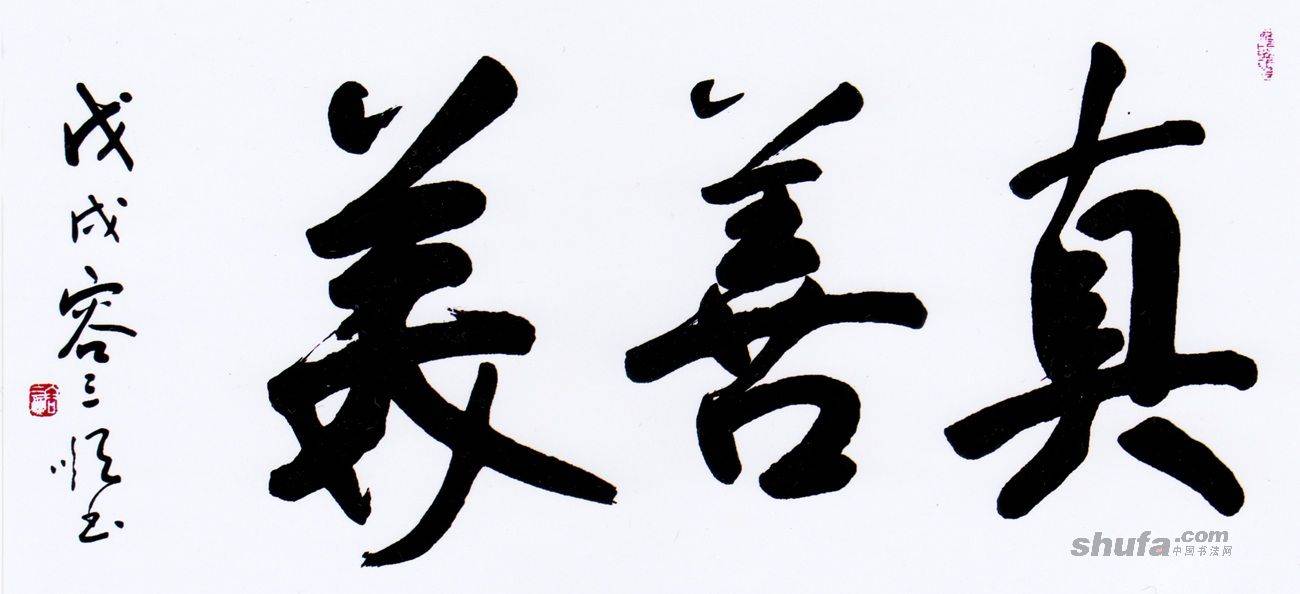 真善美
戊戌容三顺书
shufa.com
中国书法网